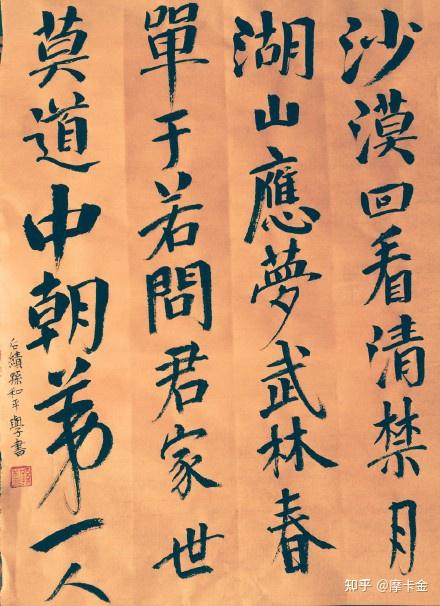 沙漠回看清禁月
湖山應夢武林春
單于若問君家世
莫道中朝第一人
知乎 @摩卡金